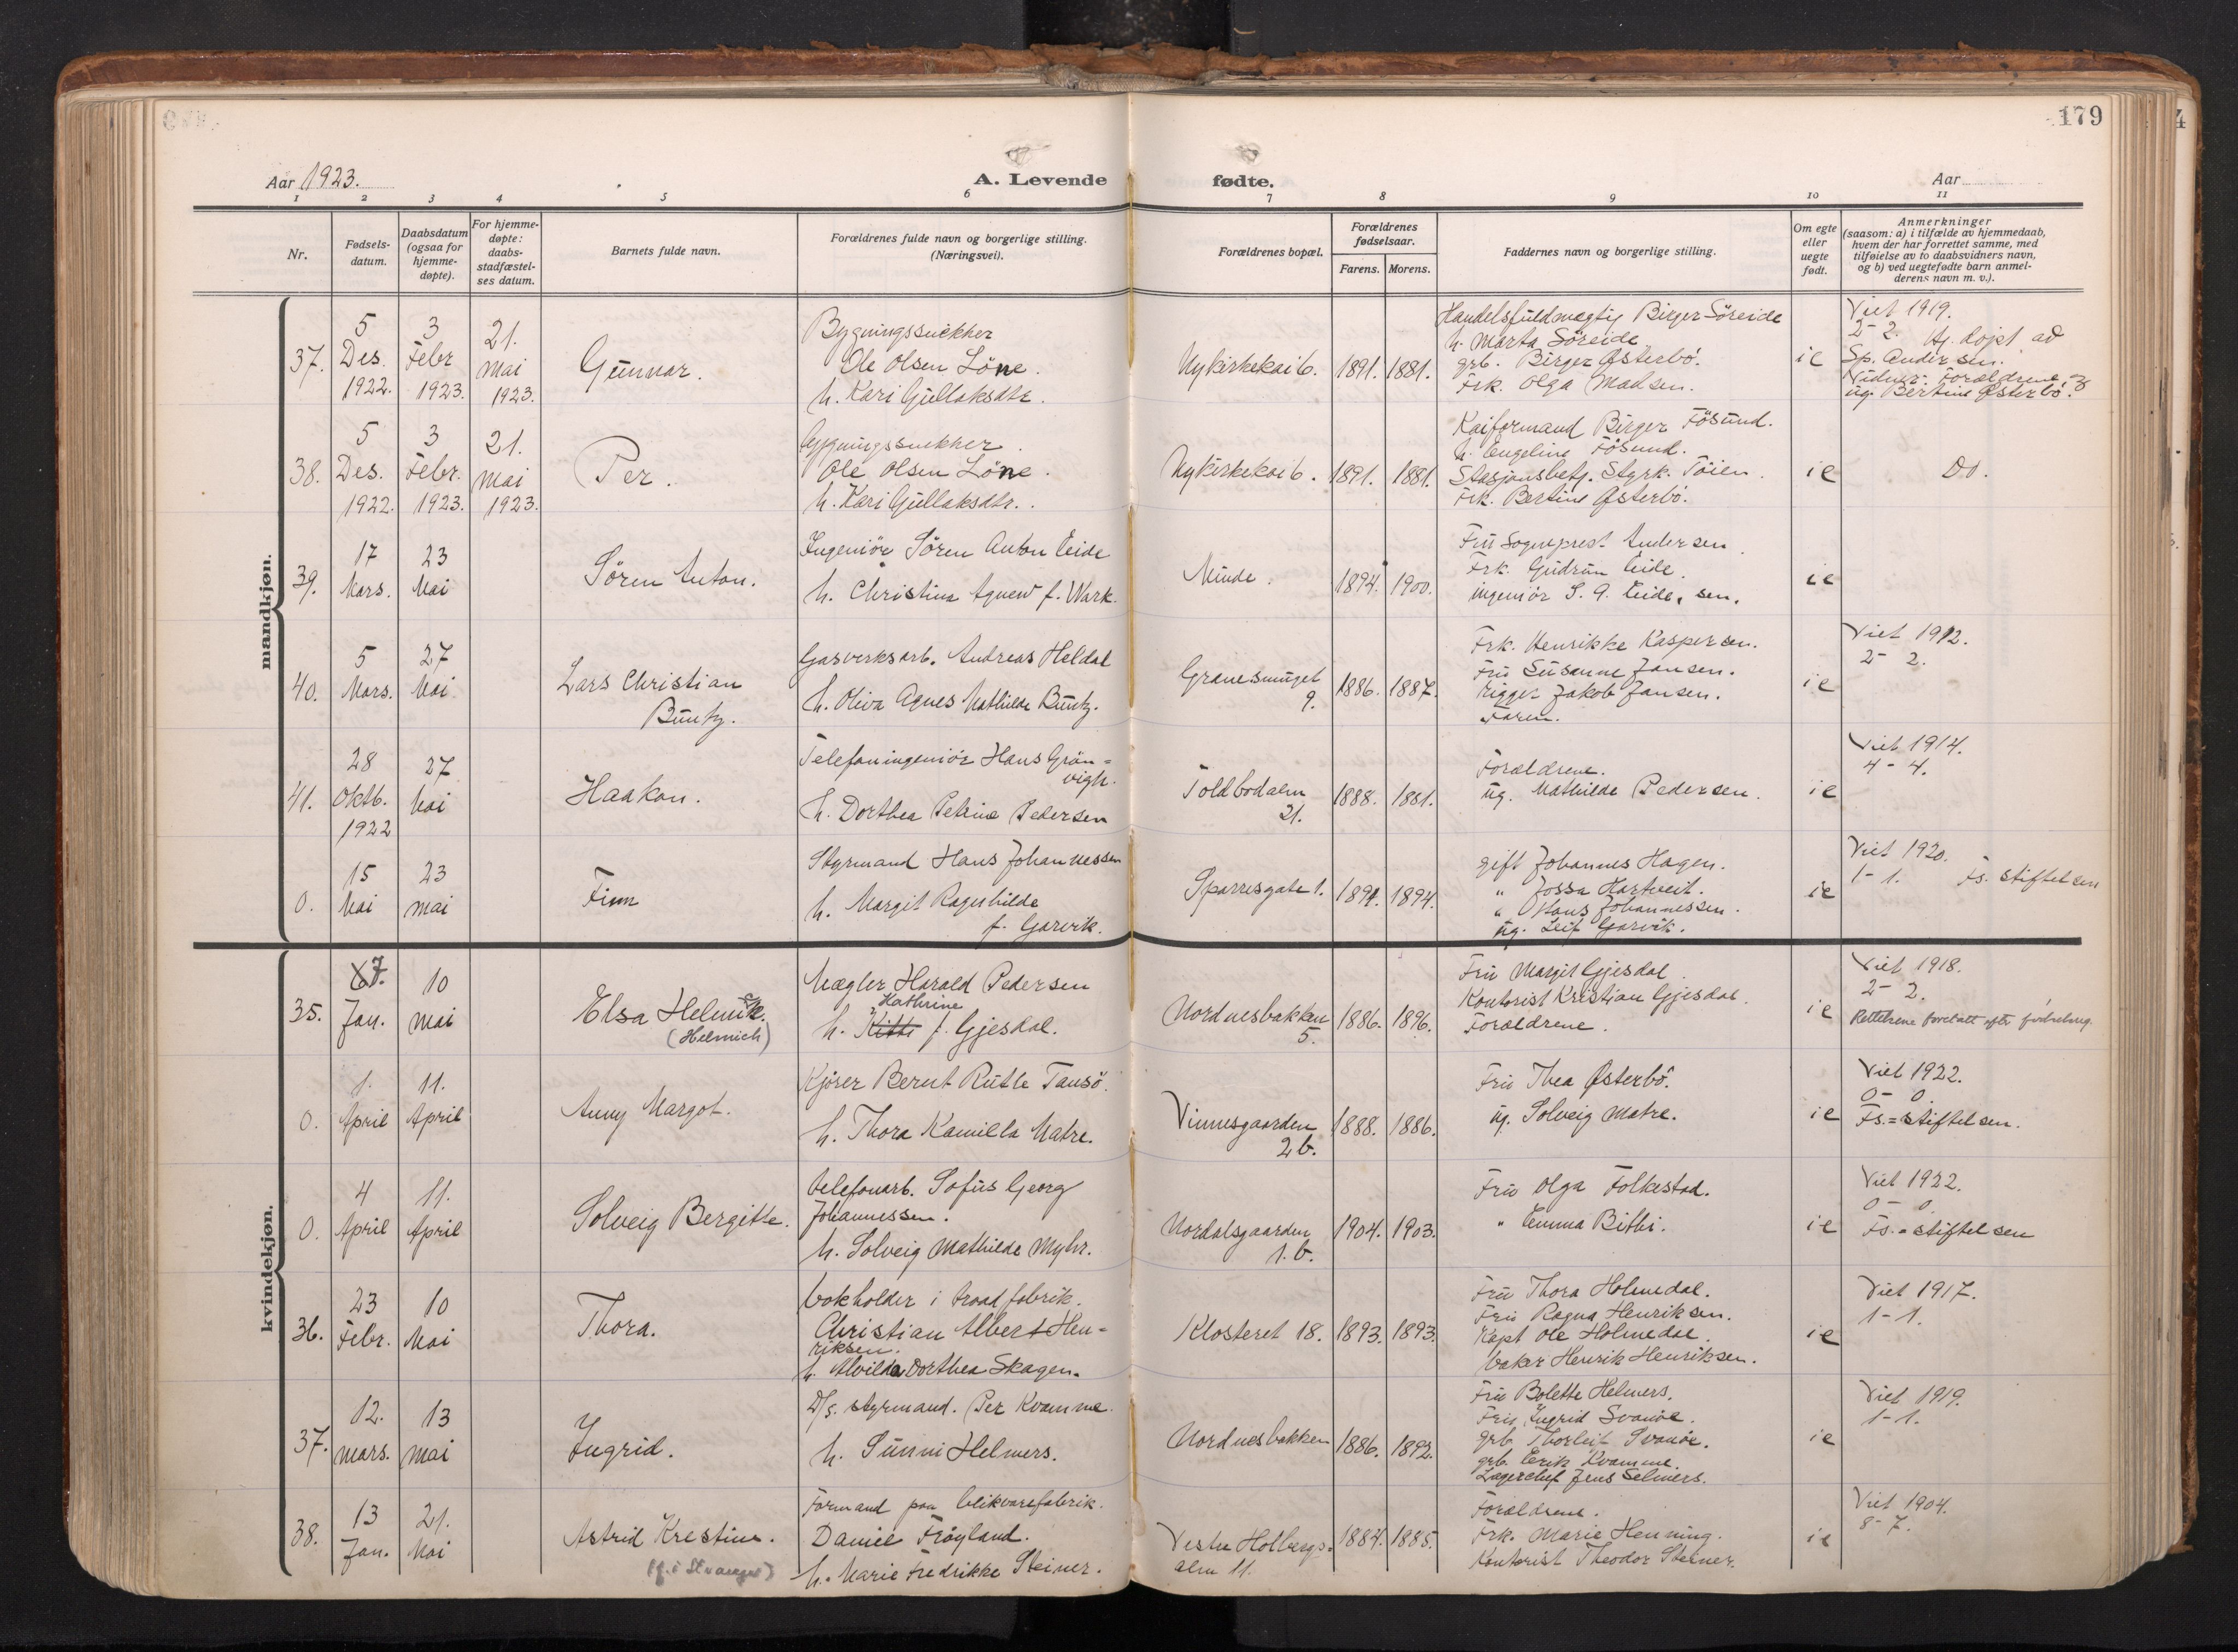 179
Aar 1923.
A. Levende fødte.
Aar
1 2 3 4 5 6 7 8 9 10 11
Nr.
Fødsels-
datum.
Daabsdatum
(ogsaa for
hjemme-
døpte).
For hjemme-
døpte:
daabs-
stadfæstel-
ses datum.
Barnets fulde navn.
Forældrenes fulde navn og borgerlige stilling.
(Næringsvei).
Forældrenes bopæl.
Forældrenes
fødselsaar.
Farens. Morens.
Faddernes navn og borgerlige stilling.
Om egte
eller
uegte
født.
Anmerkninger
(saasom: a) i tilfælde av hjemmedaab,
hvem der har forrettet samme, med
tilføielse av to daabsvidners navn,
og b) ved uegtefødte barn anmel-
derens navn m. v.).
mandkjøn.
37.
5
Des.
1922.
3
Febr
1923.
21.
mai
1923.
Gunnar.
Bygningssnekker
Ole Olsen Löne.
h. Kari Gullaksdtr.
Nykirkekai 6.
1891. 1881.
Handelsfuldmægtig Birger Söreide
h. Marta Söreide
grb. Birger Østerbö.
Frk. Olga Madsen.
ie
Viet 1919.
2- 2. Hj. döpt av
Sp. Andersen.
Vidner: Forældrene, og
ug. Bertine Østerbö.
38.
5
Des.
1922.
3
Febr.
1923.
21
mai
1923.
Per.
bygningssnekker.
Ole Olsen Löne.
h. Kari Gullaksdtr.
Nykirkekai 6.
1891. 1881.
Kaiformand Birger Fösund.
h. Engeline Fösund.
Stasjonsbetj. Styrk. Töien.
Frk. Bertine Østerbö.
ie
Do.
39.
17
Mars.
23
Mai
Sören Anton.
Ingeniör Sören Anton Eide
h. Christina Agnew f. Wark.
Minde.
1894. 1900.
Fru Sogneprest Andersen.
Frk. Gudrun Eide.
ingeniör S. A. Eide, sen.
ie
40.
5
Mars.
27
Mai.
Lars Christian
Buntz.
Gasverksarb. Andreas Heldal
h. Oliva Agnes Mathilde Buntz.
Granesmuget
9.
1886. 1887.
Frk. Henrikke Kaspersen.
Fru Susanne Jansen.
rigger Jakob Jansen.
Faren.
ie
Viet 1912.
2- 2.
41.
28
Oktb.
1922
27
Mai
Haakon.
Telefoningeniör Hans Grön-
vigh.
h. Dorthea Petrine Pedersen
Toldbodalm
21.
1888. 1881.
Forældrene.
ug. Mathilde Pedersen.
ie
Viet 1914.
4- 4.
0.
15
Mai
23
mai
Finn
Styrmand Hans Johannessen
h. Margit Ragnhilde
f. Garvik.
Sparresgate 1.
1894. 1894.
gift Johannes Hagen.
" Jossa Hartveit.
" Hans Johannessen.
ug. Leif Garvik.
ie
Viet 1920.
1- 1. Fs. stiftelsen
kvindekjøn.
35.
7.
Jan.
10
mai
Elsa Helmich.
(Helmich)
Mægler Harald Pedersen
Kathrine
h. Kitti f. Gjesdal.
Nordnesbakken
5.
1886. 1896.
Fru Margit Gjesdal.
Kontorist Kristian Gjesdal.
Forældrene.
ie
Viet 1918.
2- 2.
0.
1.
April
11.
April
Anny Margot.
Kjörer Bernt Rutle Tausö.
h. Thora Kamilla Matre.
Vinnesgaarden
2 b.
1888. 1886.
Fru Thea Østerbö.
ug. Solveig Matre.
ie
Viet 1922.
0- 0.
Fs.=stiftelsen.
0.
4
April
11.
April
Solveig Bergitte.
telefonarb. Sofus Georg
Johannessen.
h. Solveig Mathilde Myhr.
Nordalsgaarden
1.b.
1904. 1903.
Fru Olga Folkestad.
" Emma Bithi.
ie
Viet 1922.
0- 0.
Fs.=stiftelsen
36.
23
Febr.
10
Mai
Thora.
bokholder i traadfabrik.
Christian Albert Hen-
riksen.
h. Alvilda Dorthea Skagen.
Klosteret 18.
1893. 1893.
Fru Thora Holmedal.
Fru Ragna Henriksen.
Kapt Ole Holmedal.
baker Henrik Henriksen.
ie
Viet 1917.
1-1.
37.
12.
mars.
13
mai
Ingrid.
D/s. styrmand. Per Kvamme.
h. Sunni Helmers.
Nordnesbakken
1886. 1892.
Fru Bolette Helmers.
Fru Ingrid Svanöe.
grb Thorleif Svanöe.
grb. Erik Kvamme.
Lagerchef Jens Selmers.
ie
Viet 1919.
1-1.
38.
13
Jan.
21.
Mai
Astrid Krestine.
(f. i Stavanger)
Formand paa blikvarefabrik.
Daniel Fröyland.
h. Marie Fredrikke Steiner.
Vestre Holbergs-
alm 11.
1884. 1885.
Forældrene.
Frk. Marie Henning.
Kontorist Theodor Steiner.
ie
Viet 1904.
8- 7.